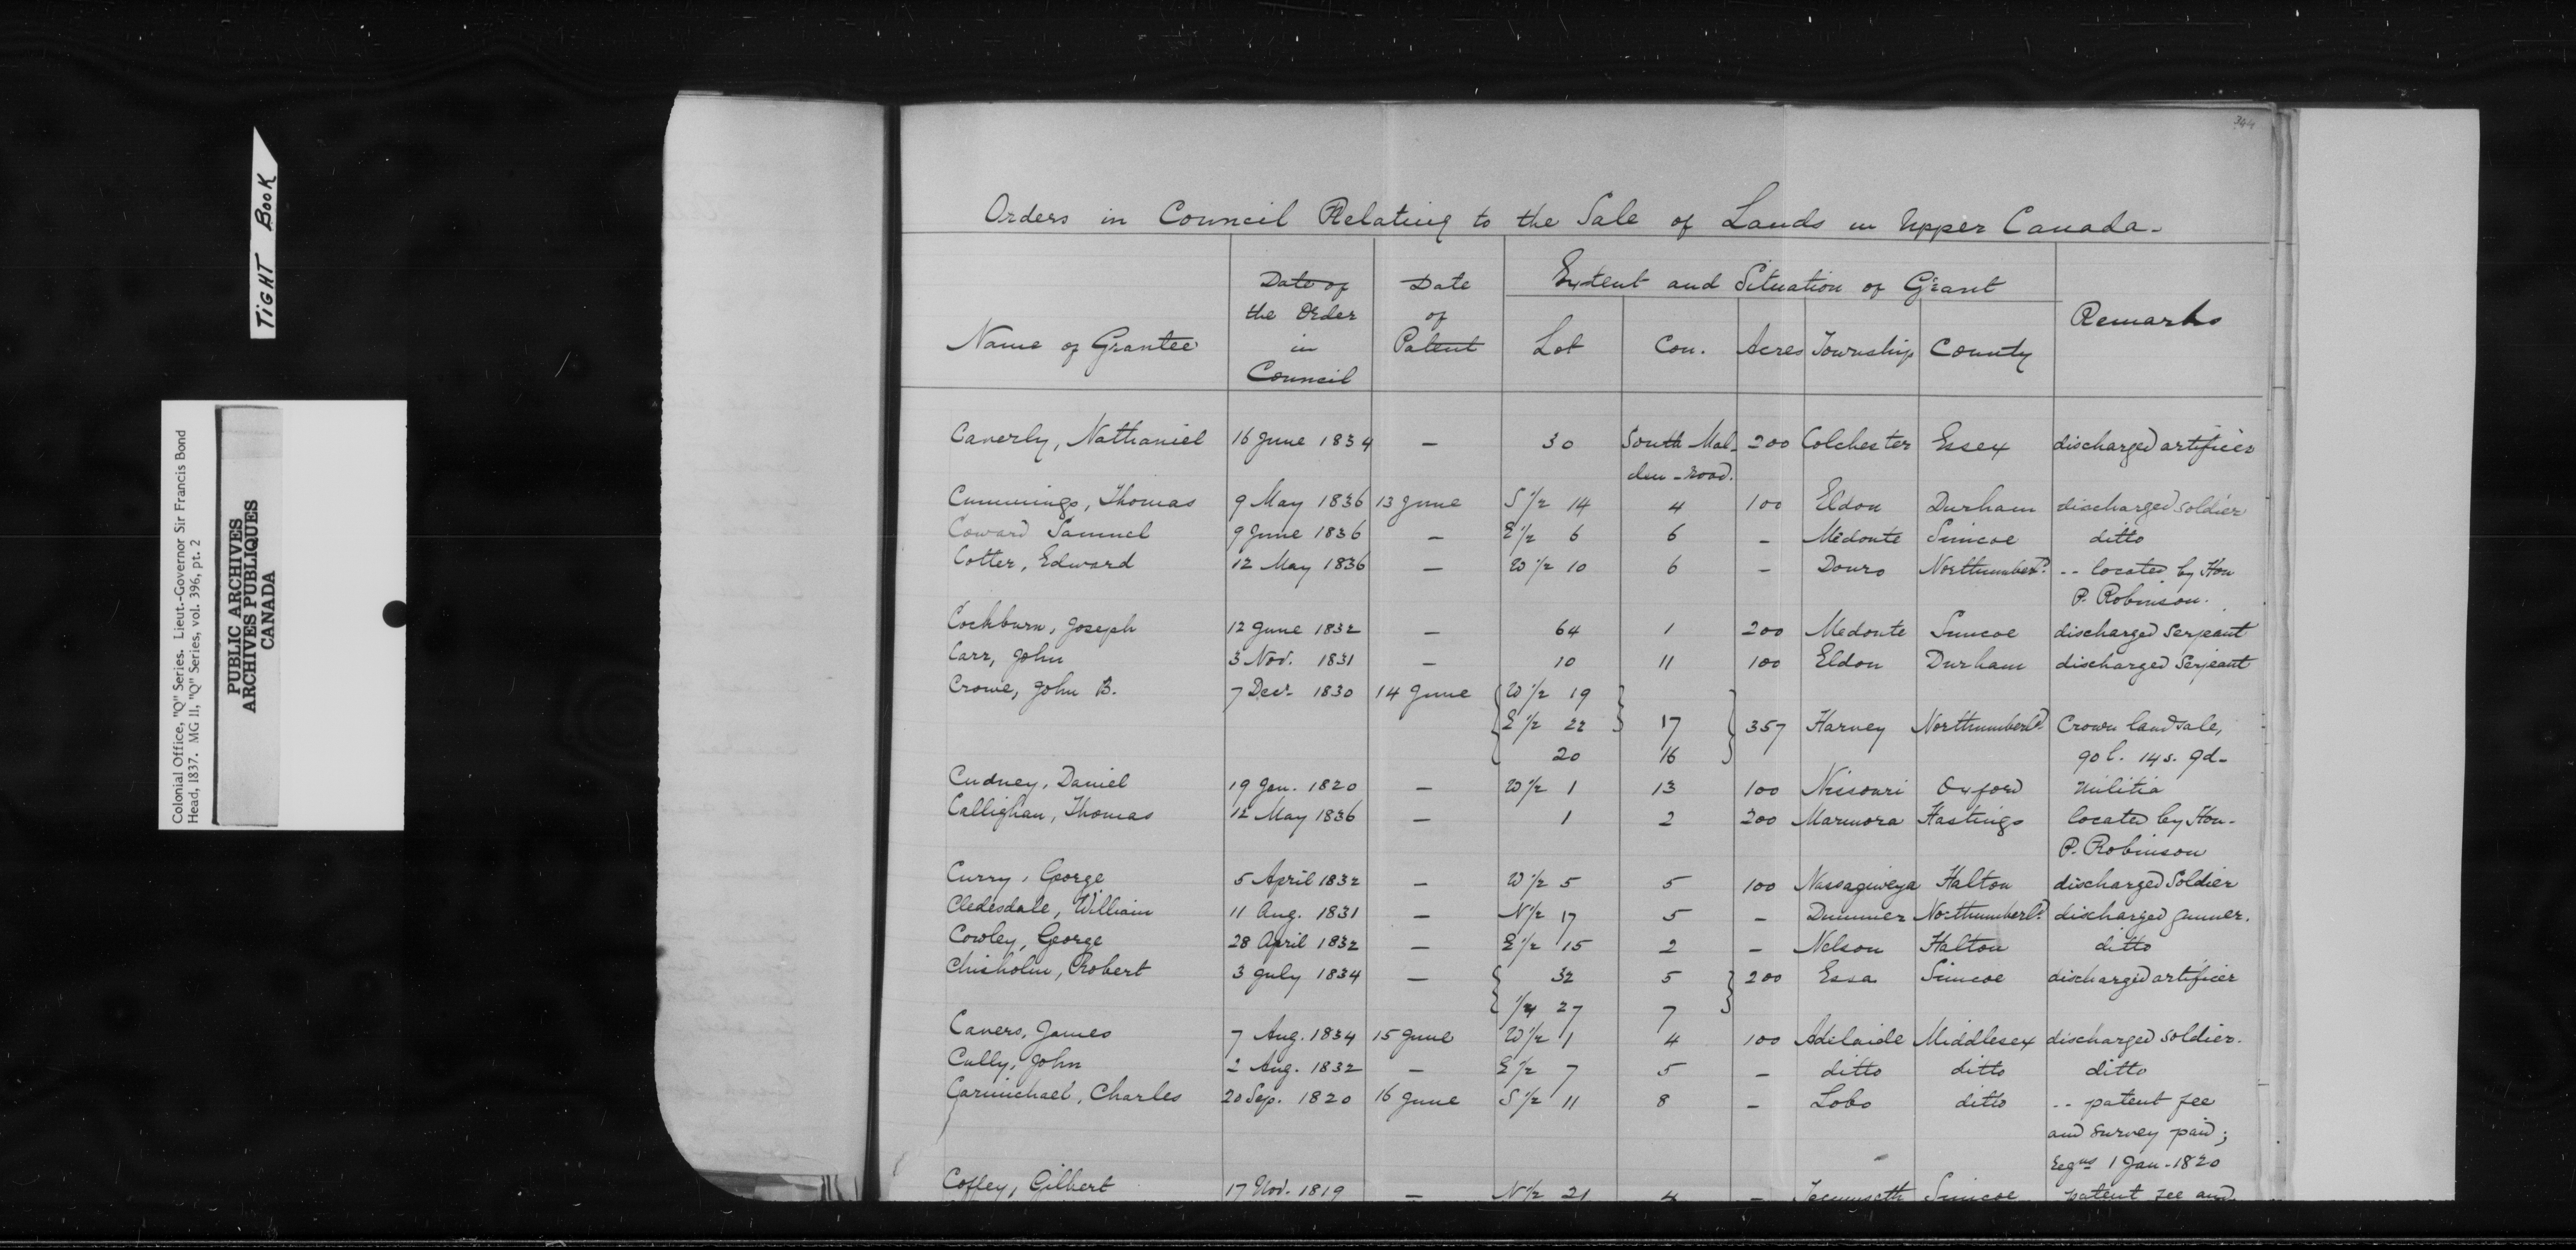 TIGHT BOOK
Colonial Office, "Q" Series. Lieut.-Governor Sir Francis Bond
Head, 1837. MG 11, "Q" Series, vol. 396, pt. 2
PUBLIC ARCHIVES
ARCHIVES PUBLIQUES
CANADA
344
Orders in Council Relating to the Sale of Lands in Upper Canada.
Name of Grantee Date of the Order in Council Date of Patent Extent and Situation of Grant Remarks
Lot Con. Acres Township County
Caverly, Nathaniel 16 June 1834 — 30 South Mal- 200 Colchester Essex discharged artificer
den-road.
Cummings, Thomas 9 May 1836 13 June S 1/2 14 4 100 Eldon Durham discharged soldier
Coward Samuel 9 June 1836 — E 1/2 6 6 - Medonte Simcoe ditto
Cotter, Edward 12 May 1836 — W 1/2 10 6 - Douro Northumberd. -- located by Hon
P. Robinson.
Cockburn, Joseph 12 June 1832 — 64 1 200 Medonte Simcoe discharged Serjeant
Carr, John 3 Nov. 1831 — 10 11 100 Eldon Durham discharged Serjeant
Crowe, John B. 7 Decr 1830 14 June W 1/2 19
E 1/2 22 17 357 Harvey Northumberld. Crown land sale,
20 16 90 l. 14 s. 9d-
Cudney, Daniel 19 Jan. 1820 — W 1/2 1 13 100 Nissouri Oxford Militia
Callighan, Thomas 12 May 1836 — 1 2 200 Marmora Hastings located by Hon-
P. Robinson
Curry, George 5 April 1832 — W 1/2 5 5 100 Nassagiweya Halton discharged Soldier
Cledesdale, William 11 Aug. 1831 — N 1/2 17 5 - Dummer Northumberld. discharged gunner.
Cowley, George 28 April 1832 — E 1/2 15 2 - Nelson Halton ditto
Chisholm, Robert 3 July 1834 — 32 5 200 Essa Simcoe discharged artificer
1/4 27 7
Cavers, James 7 Aug. 1834 15 June W 1/2 1 4 100 Adelaide Middlesex discharged soldier.
Cully, John 2 Aug. 1832 — E 1/2 7 5 - ditto ditto ditto
Carmichael, Charles 20 Sep. 1820 16 June S 1/2 11 8 - Lobo ditto -- patent fee
and survey paid;
1 Jan-1820
Coffey, Gilbert 17 Nov. 1819 — N 1/2 21 4 - Tecumseth Simcoe patent fee and